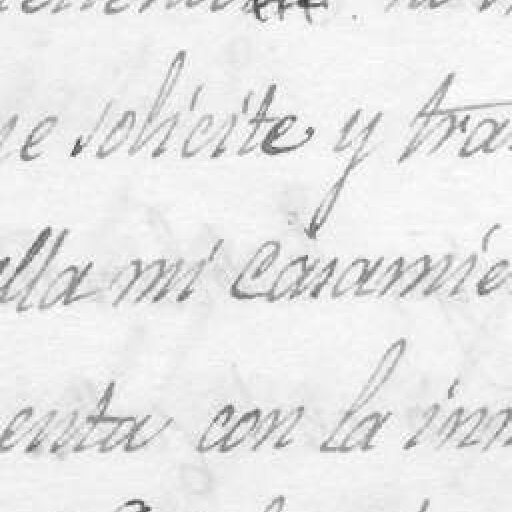 ue solicite y tra
alla mi Casamie
enta con la inn